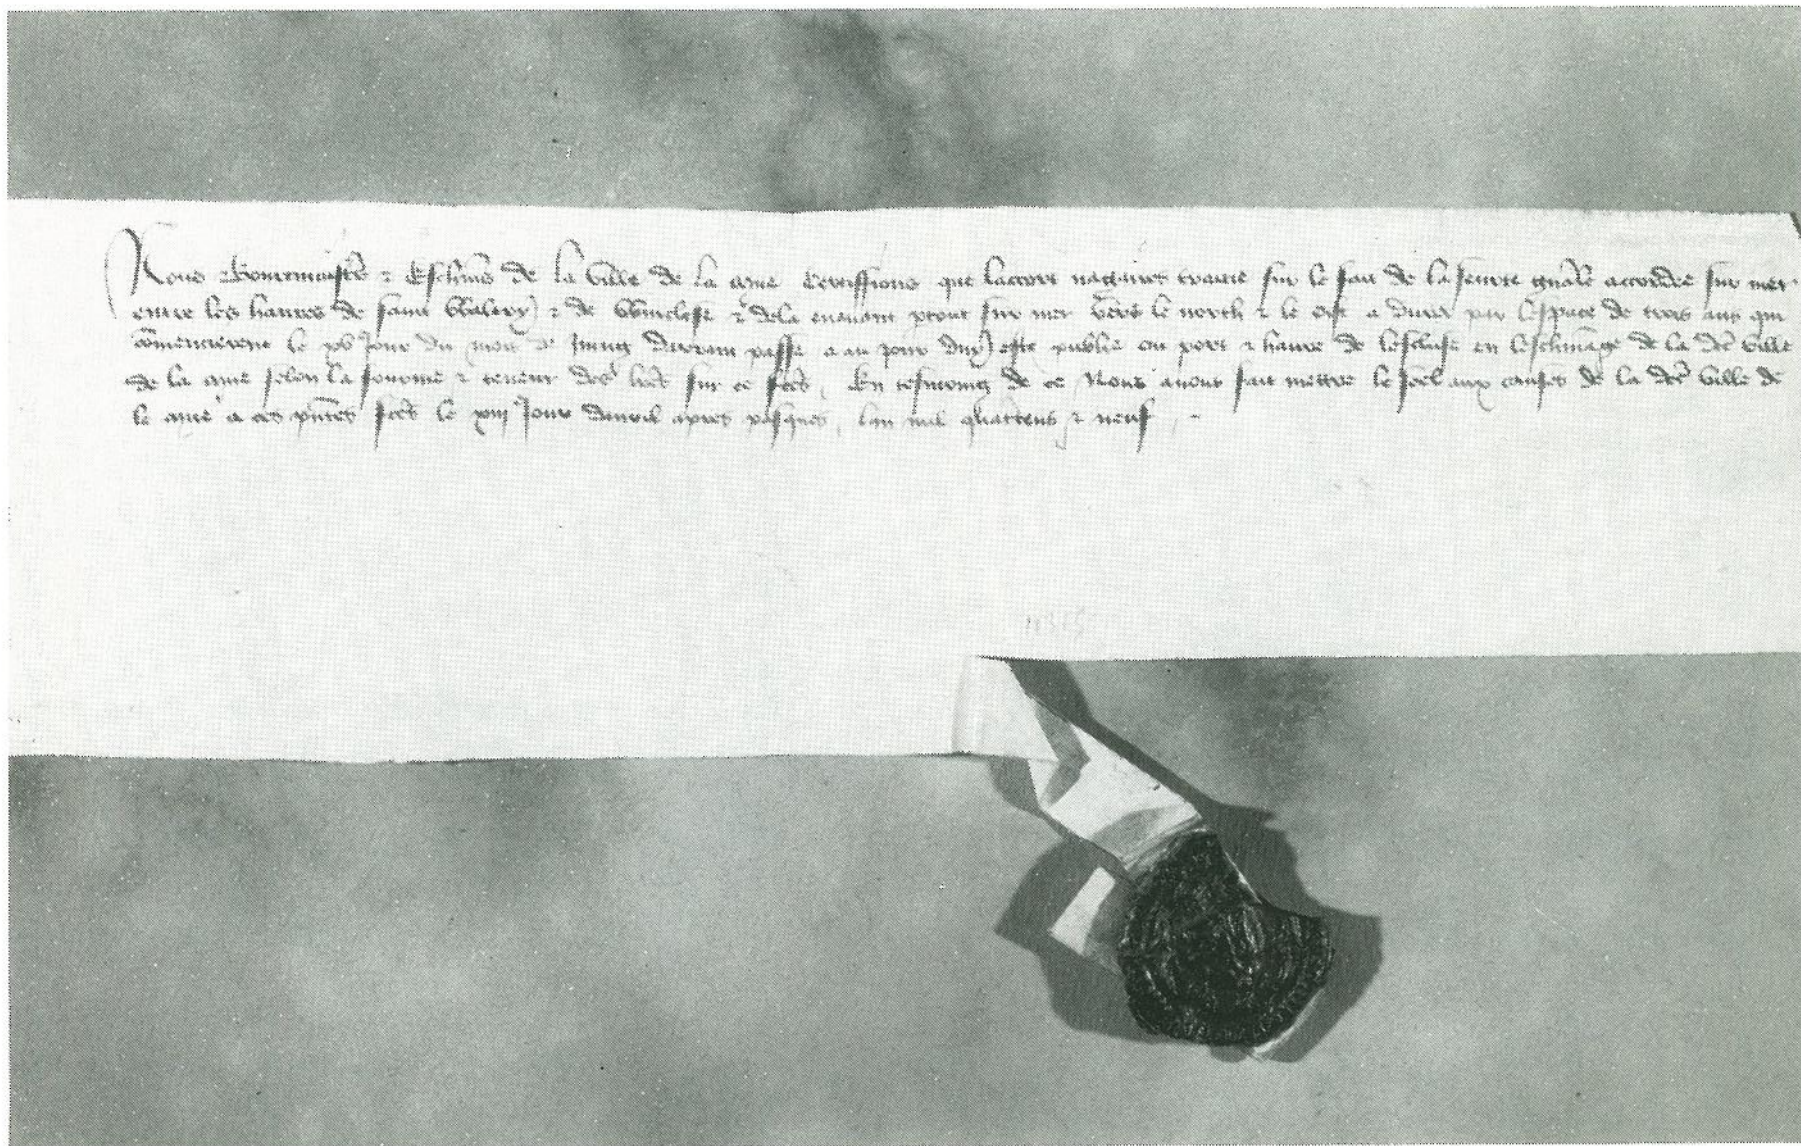 Nous Bourmaistrs & Eschins de la ville de la mue Certiffions que laccort nagaires traitie sur le fait de la seurte gnale accordee sur mer
entre les havres de saint Walery & de Winclese & dela enavant ptout sur mer vers le north & le est a durer par lespace de trois ans qui
comencierent le xve Jour du mois de Juing darrain passe a au jour duy este publie ou port & havre de lescluse en leschinage de la dce ville
de la mue selon la fourme & teneur des lres sur ce fces, En tesmoing de ce Nous avons fait mettre le seel aux causes de la dce ville de
le mue a ces pntes fces le xiiie Jour davril apres pasques, lan mil quattcens & neuf